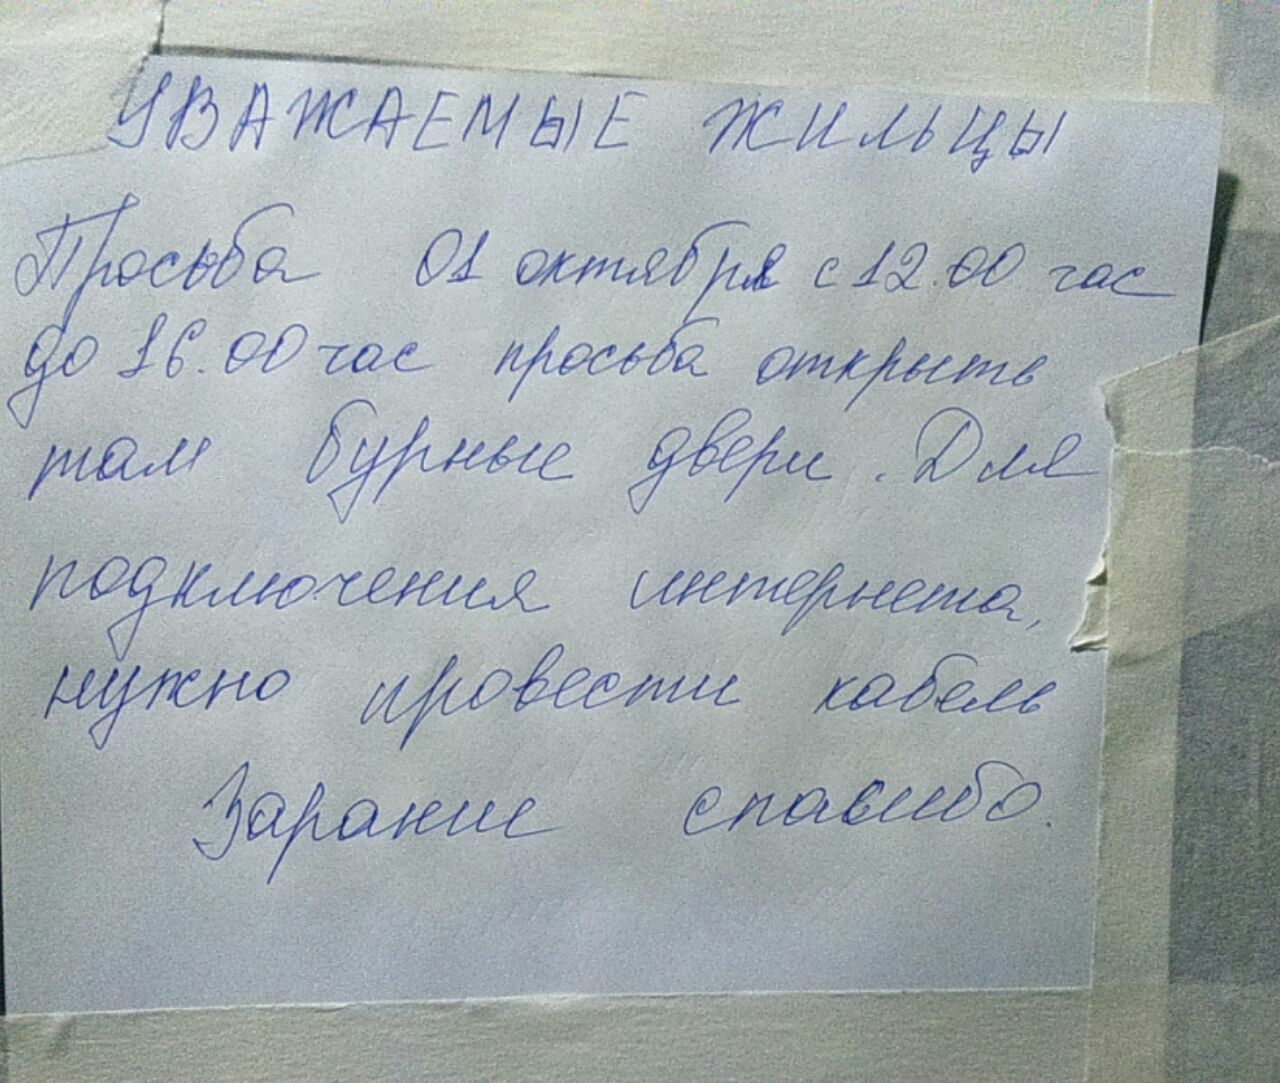 УВАЖАЕМЫЕ ЖИЛЬЦЫ
Просьба 01 октября с 12.00 час
до 16.00 час просьба открыть
там бурные двери. Для
подключения интернета,
нужно провести кабель
Зарание спасибо.